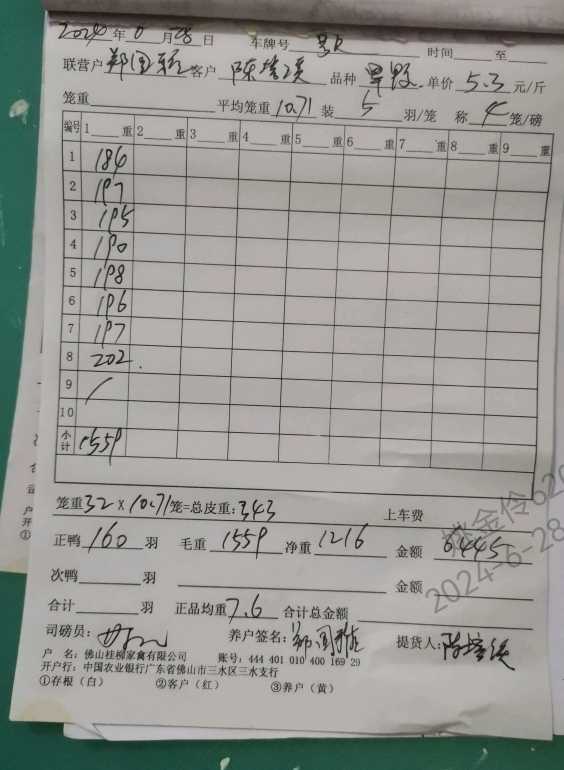 2024年6月28日 车牌号 时间 至
联营户 郑国强 客户 陈 品种 单价 5.3 元/斤
笼重 平均笼重 10.71 装 5 羽/笼 称 4 笼/磅
编号 1 重 2 重 3 重 4 重 5 重 6 重 7 重 8 重 9 重
1 184
2 197
3 195
4 190
5 198
6 196
7 197
8 202.
9 /
10
小计 1559
笼重32×10.71笼=总皮重:343 上车费
正鸭 160 羽 毛重 1559 净重 1216 金额 6445
次鸭 羽 金额
合计 羽 正品均重 7.6 合计总金额
司磅员: 养户签名: 郑国强 提货人: 陈
户 名:佛山桂柳家禽有限公司 账号:444 401 010 400 169 29
开户行:中国农业银行广东省佛山市三水区三水支行
①存根(白) ②客户(红) ③养户(黄)
金伶620
2024-6-28